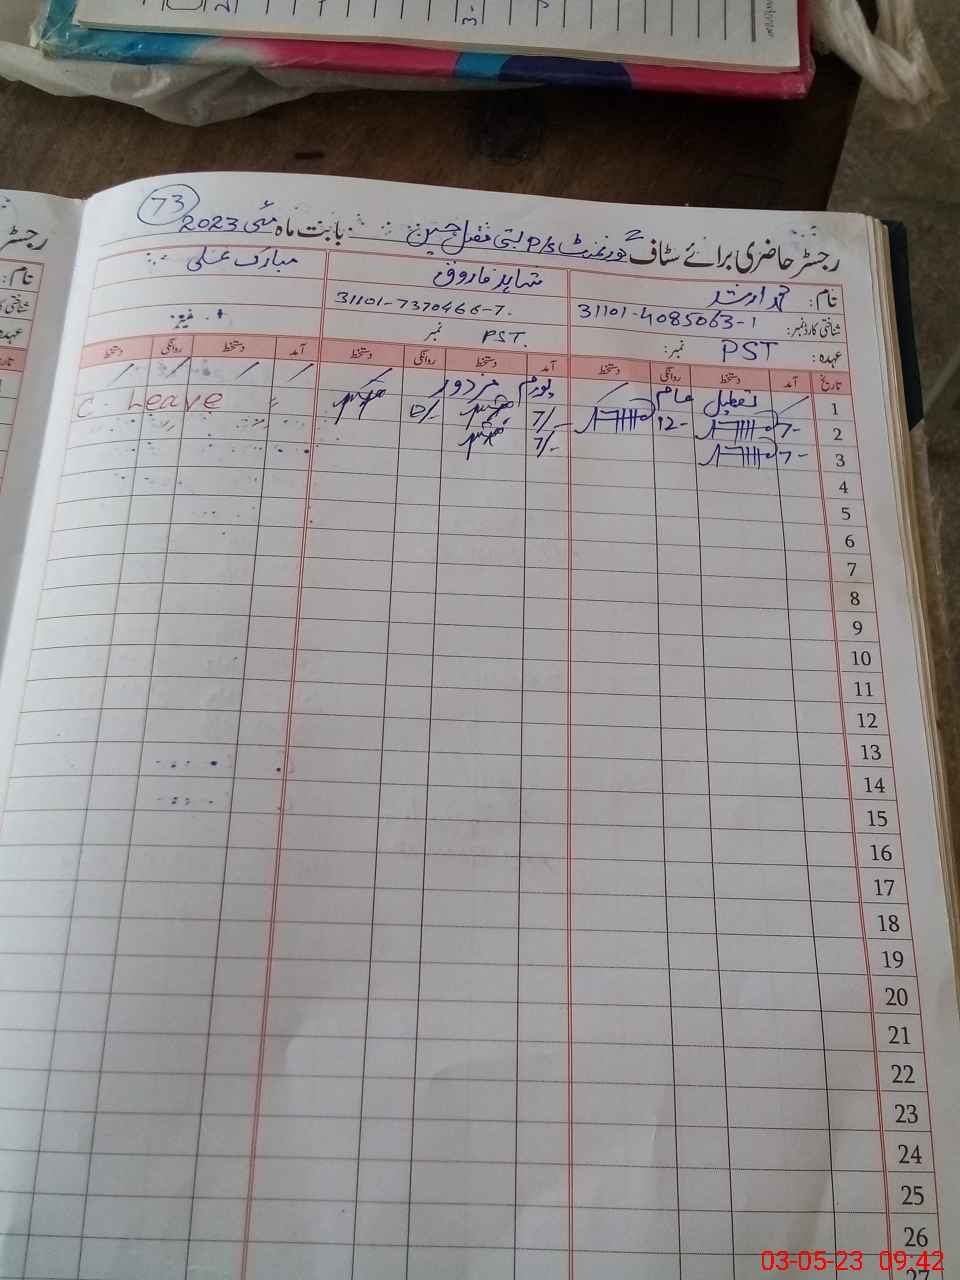 73
رجسٹر حاضری برائے سٹاف گورنمنٹ P/S بستی فضل حسین بابت ماہ مئی 2023
نام: محمد ارشد شاہد فاروق مبارک علی
شناختی کارڈ نمبر: 31101-4085063-1 31101-7370466-7
عہدہ: PST نمبر: PST. نمبر
تاریخ آمد دستخط روانگی دستخط آمد دستخط روانگی دستخط آمد دستخط روانگی دستخط
1 تعطیل عام یوم مزدور
2 7- 12- 7/- C. Leave
3 7- 7/-
4
5
6
7
8
9
10
11
12
13
14
15
16
17
18
19
20
21
22
23
24
25
26
27
03-05-23 09:42